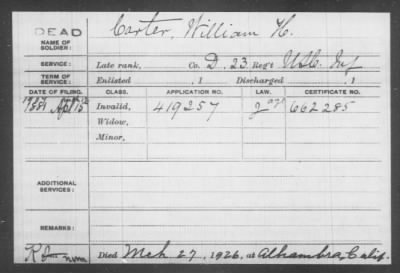 DEAD
NAME OF SOLDIER: Carter, William H.
SERVICE: Late rank, Co. D, 23 Reg't U.S.C. Inf
TERM OF SERVICE: Enlisted , 1 Discharged , 1
DATE OF FILING. CLASS. APPLICATION NO. LAW. CERTIFICATE NO.
Invalid, 419257 662285
Widow,
Minor,
ADDITIONAL SERVICES:
REMARKS:
Died Mch 27, 1926, at Alhambra, Calif.